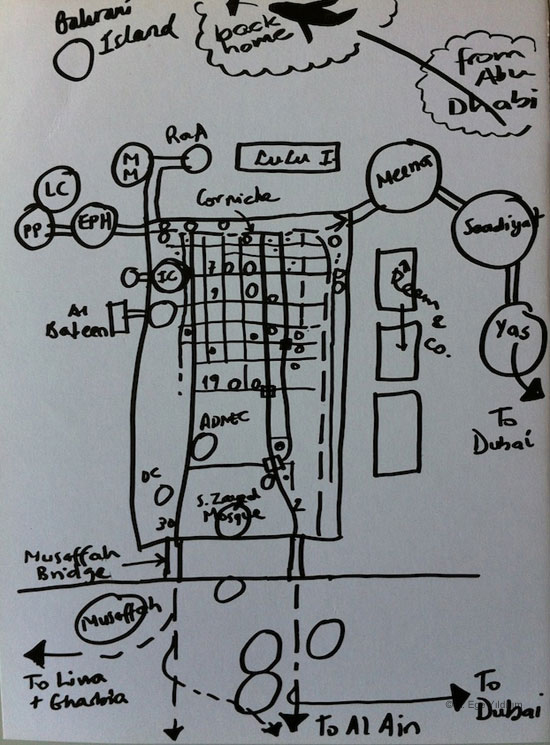 Bahrani
Island
back
home
from
Abu
Dhabi
RaA
LULU I
MM
Meena
LC
Corniche
PP
EPH
Saadiyat
IC
7
Al
Bateen
9
Reem
&
Co.
Yas
19
To
Dubai
ADNEC
OC
S. Zayed
Mosque
30
2
Musaffah
Bridge
Musaffah
To Liwa
+ Gharbia
To
Dubai
To Al Ain